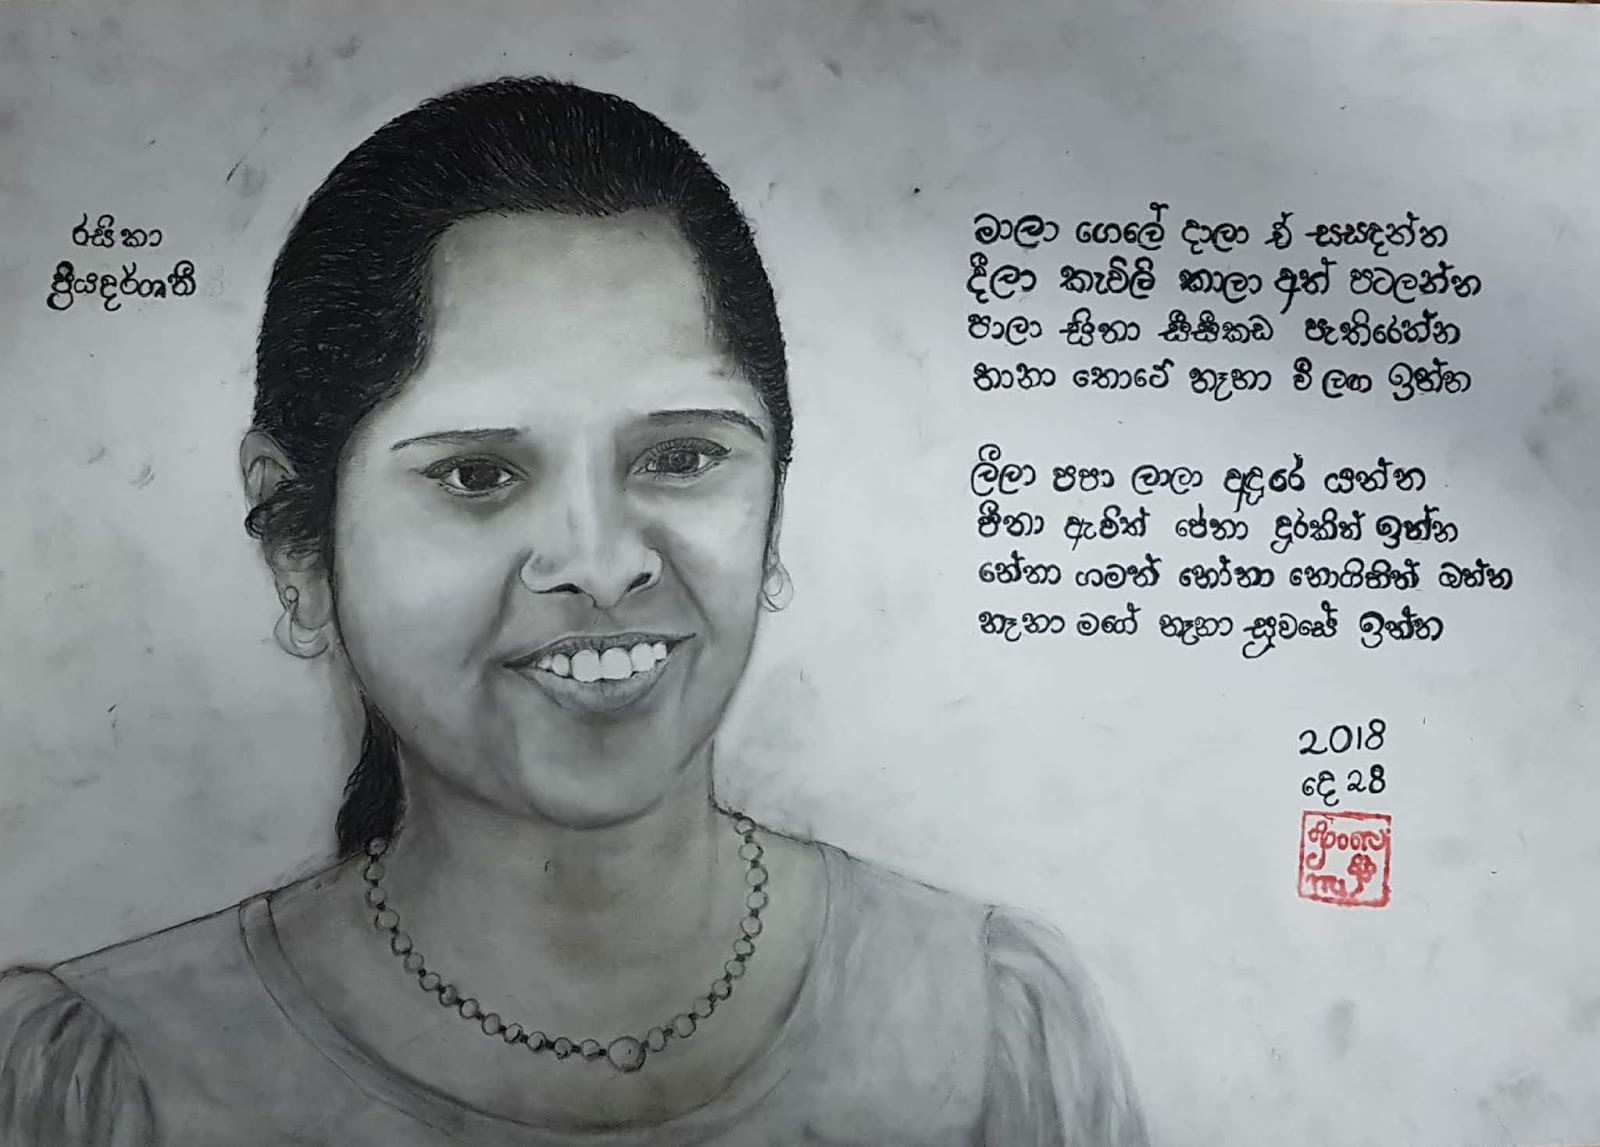 රසිකා
ප්‍රියදර්ශනී
මාලා ගෙලේ දාලා ඒ සසඳන්න
දීලා කැවිලි කාලා අත් පටලන්න
පාලා සිනා සීසීකඩ පැතිරෙන්න
නානා තොටේ නෑනා වී ලඟ ඉන්න
ලීලා පපා ලාලා අඳුරේ යන්න
ඒනා ඇවිත් පේනා දුරකින් ඉන්න
නේනා ගමන් හෝනා නොගිහින් ඔන්න
නෑනා මගේ නෑනා සුවසේ ඉන්න
2018
දෙ 28